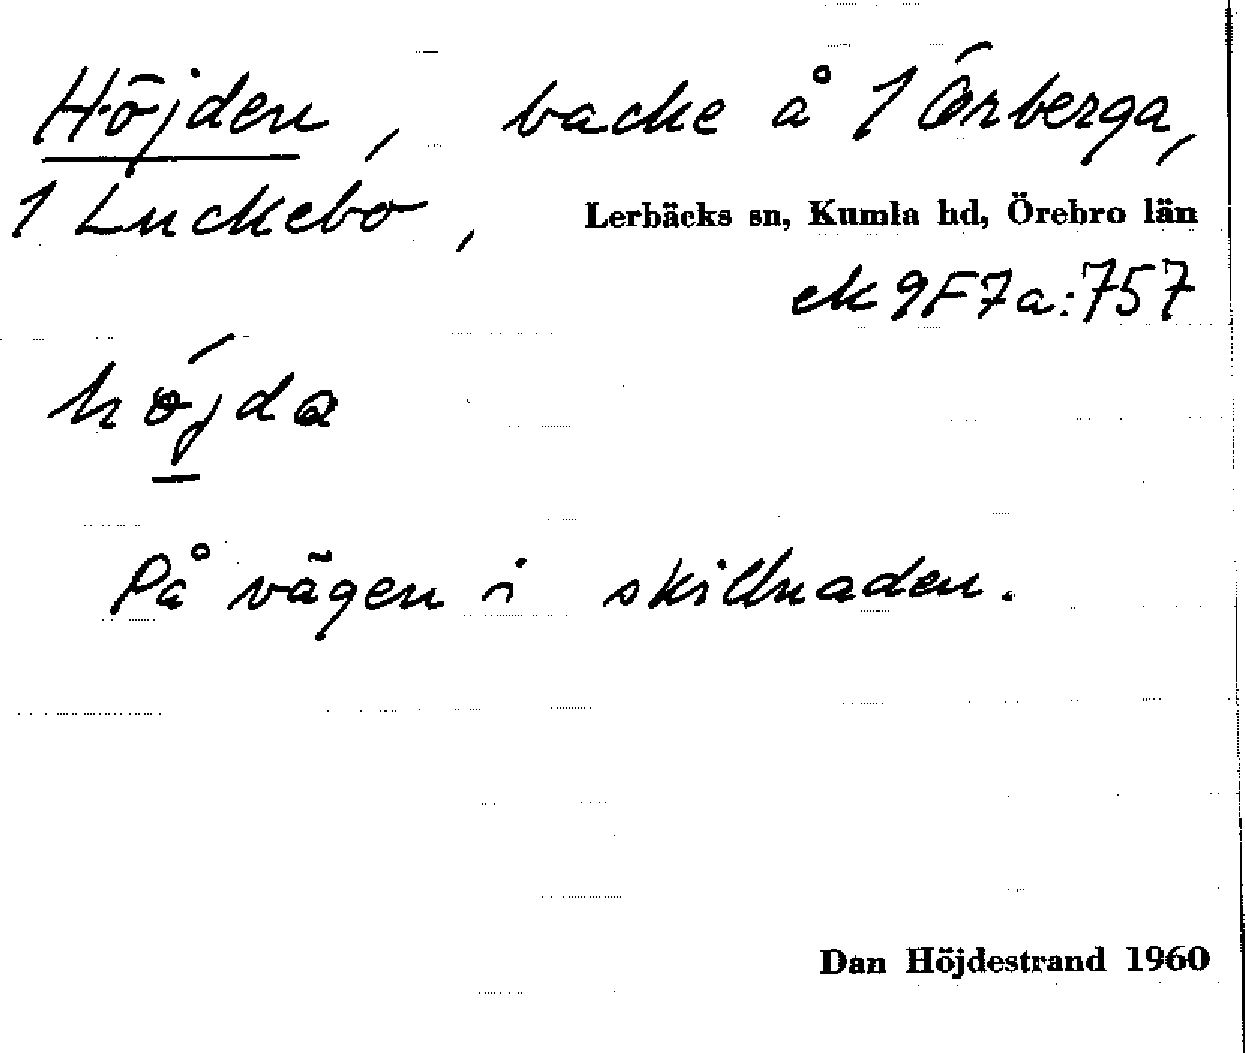 Höjden, backe å 1 Örberga,
1 Luckebo, Lerbäcks sn, Kumla hd, Örebro län
ek 9F7a:757
höjda
På vägen i skillnaden.
Dan Höjdestrand 1960